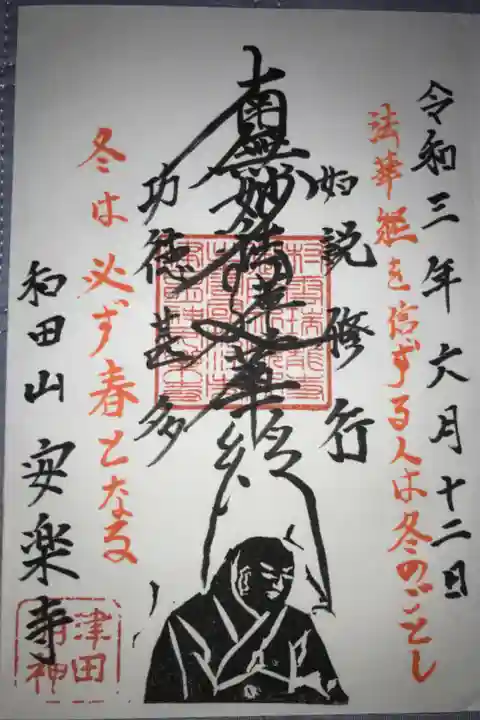 令和三年六月十二日
法華経を信ずる人は冬のごとし
如説修行
南無妙法蓮華経
功徳甚多
冬は必ず春となる
和田山 安楽寺
津田
明神